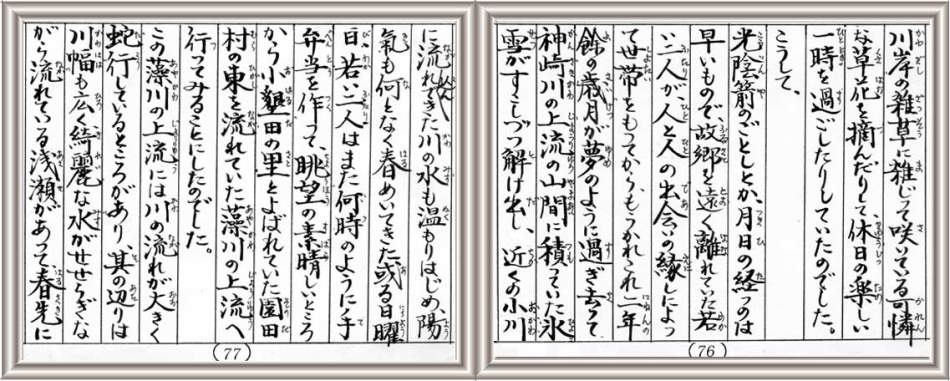 川岸の雑草に雑じって咲いている可憐
な草花を摘んだりして、休日の楽しい
一時を過ごしたりしていたのでした。
こうして、
光陰箭のごとしとか、月日の経つのは
早いもので、故郷を遠く離れていた若
い二人が人と人の出会いの縁しによっ
て世帯をもってから、もうかれこれ二年
餘の歳月が夢のように過ぎ去って
神崎川の上流の山間に積っていた氷
雪がすこしづつ解け出し、近くの小川
(76)
に流れてきた川の水も温もりはじめ、陽
氣も何となく春めいてきた或る日曜
日、若い二人はまた何時のように
弁当を作って、眺望の素晴しいところ
から小墾田の里とよばれていた園田
村の東を流れていた藻川の上流へ
行ってみることにしたのでした。
この藻川の上流には川の流れが大きく
蛇行しているところがあり、其の辺りは
川幅も広く綺麗な水がせせらぎな
がら流れている浅瀬があって春先に
(77)